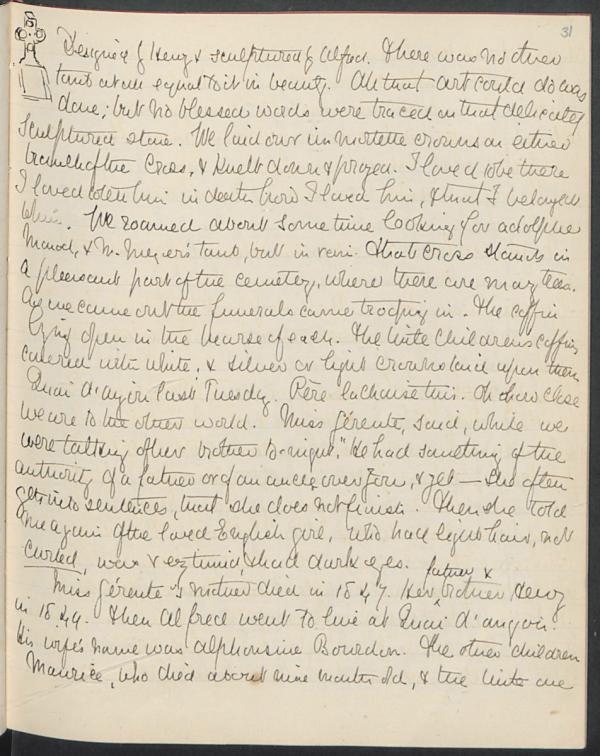 31
Designed by Henry & sculptured by Alfred. There was no other
tomb at all equal to it in beauty. All that art could do was
done; but no blessed words were traced on that delicately
sculptured stone. We laid our immortelle crowns on either
branch of the Cross, & knelt down & prayed. I loved to be there
I loved to tell him in death how I loved him, & that I belonged
to him. We roamed about some time looking for Adolphe
Monod, & M. Meyer's tomb, but in vain. That cross stands in
a pleasant part of the cemetery, where there are many trees.
As we came out the funerals came trooping in. The coffin
lying open in the hearse of each. The little childrens coffins
covered with white, & silver or light crowns laid upon them
Quai d'Anjou last Tuesday. Père Lachaise this. Oh how close
we are to the other world. Miss Gérente, said, while we
were talking of her brother to-night, "He had something of the
authority of a father or of an uncle over you, & yet — She often
gets into sentences, that she does not finish. Then she told
me again of the loved English girl, who had light hair, not
curled, was v timid, & had dark eyes.
Miss Gérente's mother died in 1847. Her father & brother, Henry
in 1849. Then Alfred went to live at Quai d'Anjou.
His wife's name was Alphonsine Bourdon. The other children
Maurice, who died about nine months old, & the little one